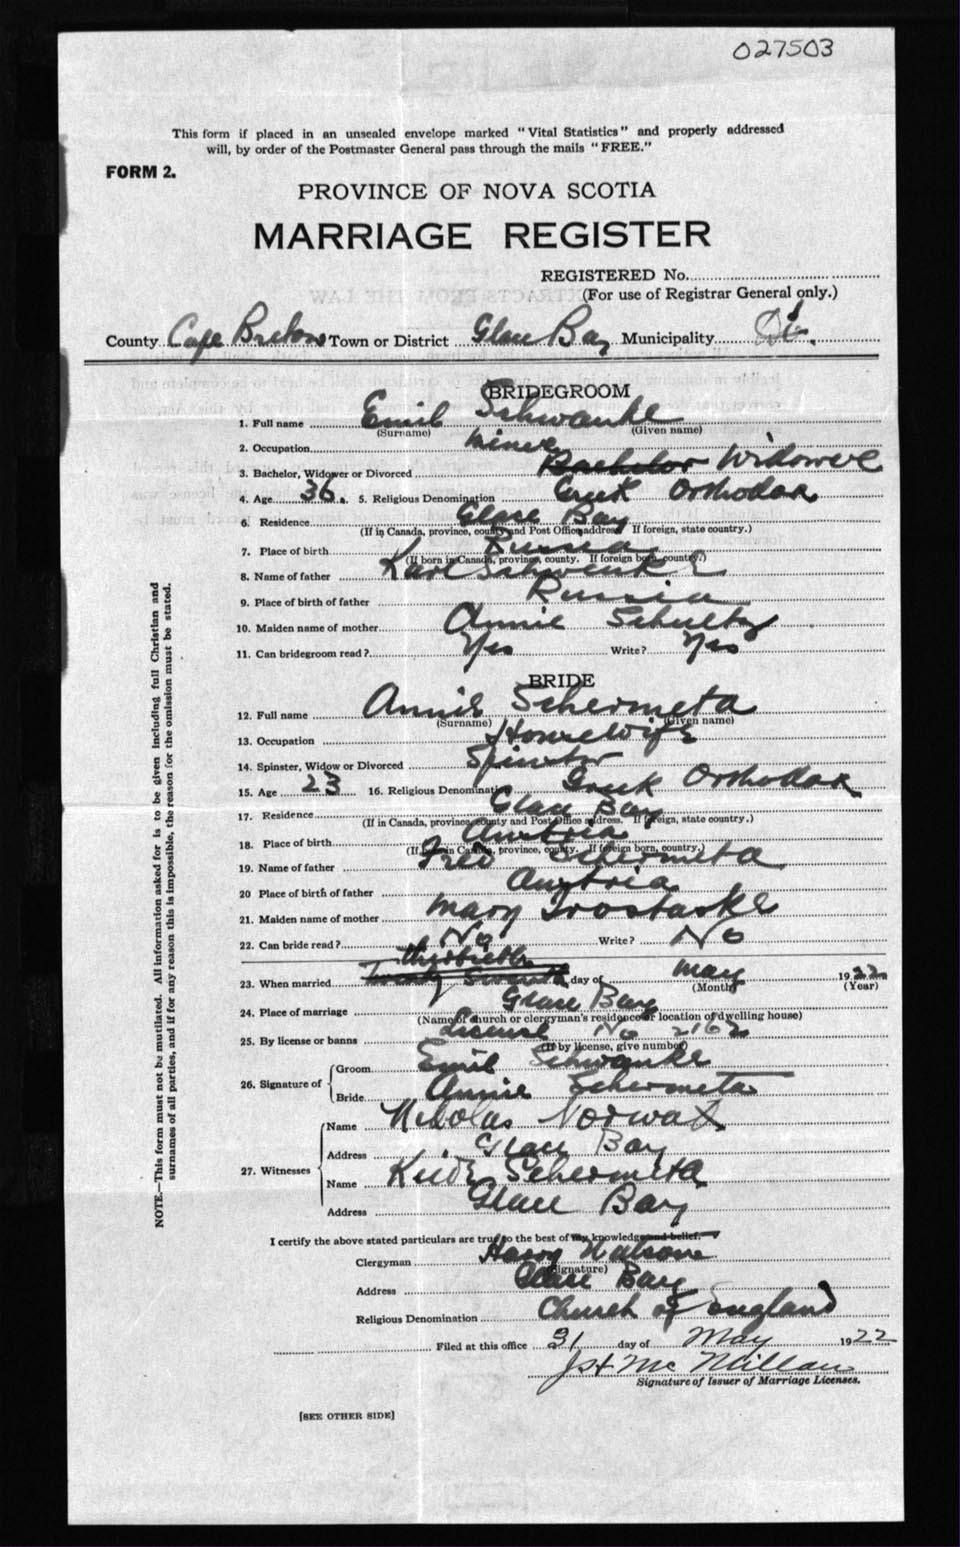 027503
This form if placed in an unsealed envelope marked "Vital Statistics" and properly addressed
will, by order of the Postmaster General pass through the mails "FREE."
FORM 2.
PROVINCE OF NOVA SCOTIA
MARRIAGE REGISTER
REGISTERED No.
(For use of Registrar General only.)
County Cape Breton Town or District Glace Bay Municipality
BRIDEGROOM
1. Full name Emil Schwanke
(Surname) (Given name)
2. Occupation Miner
3. Bachelor, Widower or Divorced Bachelor Widower
4. Age 36 5. Religious Denomination Greek Orthodox
6. Residence Glace Bay
(If in Canada, province, county and Post Office address. If foreign, state country.)
7. Place of birth Russia
(If born in Canada, province, county. If foreign born, country.)
8. Name of father Karl Schwenke
9. Place of birth of father Russia
10. Maiden name of mother Annie Schultz
11. Can bridegroom read? Yes Write? Yes
BRIDE
12. Full name Annie Schermeta
(Surname) (Given name)
13. Occupation Housewife
14. Spinster, Widow or Divorced Spinster
15. Age 23 16. Religious Denomination Greek Orthodox
17. Residence Glace Bay
(If in Canada, province, county and Post Office address. If foreign, state country.)
18. Place of birth Austria
(If born in Canada, province, county. If foreign born, country.)
19. Name of father Fred Schermeta
20 Place of birth of father Austria
21. Maiden name of mother Mary
22. Can bride read? No Write? No
23. When married Twenty Seventh thirtieth day of May 1922
(Month) (Year)
24. Place of marriage Glace Bay
(Name of church or clergyman's residence or location of dwelling house)
25. By license or banns License No 2162
(If by license, give number)
26. Signature of Groom Emil Schwanke
Bride Annie Schermeta
27. Witnesses Name Nikolas
Address Glace Bay
Name Schermeta
Address Glace Bay
I certify the above stated particulars are true to the best of my knowledge and belief.
Clergyman Harry Watson
(Signature)
Address Glace Bay
Religious Denomination Church of England
Filed at this office 31 day of May 1922
Mc Millan
Signature of Issuer of Marriage Licenses.
[SEE OTHER SIDE]
NOTE.—This form must not be mutilated. All information asked for is to be given including full Christian and
surnames of all parties, and if for any reason this is impossible, the reason for the omission must be stated.